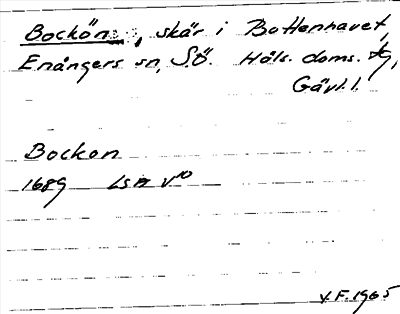 Bockön, skär i Bottenhavet,
Enångers sn, S.Ö. Häls. doms. tg,
Gävl. l.
Bockon
1689 LSA V10
V.F. 1965